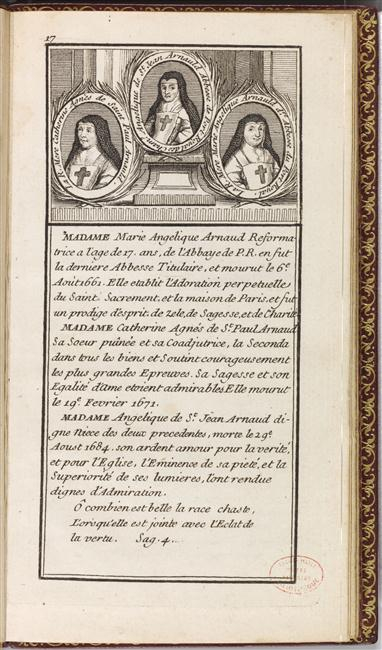 17
L.R. Mere Catherine Agnés de Saint Paul Arnaud.
Angelique de St. Jean Arnauld Abbesse de Port Royal des Champs
L.R. Mere Marie Angelique Arnauld Abbesse du Port Royal.
MADAME Marie Angelique Arnaud Reforma-
trice a l'age de 17. ans, de l'Abbaye de P.R. en fut
la derniere Abbesse Titulaire, et mourut le 6e.
Aoit 1661. Elle etablit l'Adoration perpetuelle
du Saint Sacrement, et la maison de Paris, et fut
un prodige d'esprit, de zele, de Sagesse, et de Charité
MADAME Catherine Agnés de St. Paul Arnaud
Sa Soeur puinée et sa Coadjutrice, la Seconda
dans tous les biens et Soutint courageusement
les plus grandes Epreuves. Sa Sagesse et son
Egalité d'ame etoient admirables. Elle mourut
le 19e. Fevrier 1671.
MADAME Angelique de St. Jean Arnaud di-
gne Niece des deux precedentes, morte le 29e.
Aoust 1684. son ardent amour pour la verité,
et pour l'Eglise, l'Eminence de sa pieté, et la
Superiorité de ses lumieres, l'ont rendue
dignes d'Admiration.
Ô combien est belle la race chaste,
Lorsqu'elle est jointe avec l'Eclat de
la vertu. Sag. 4.